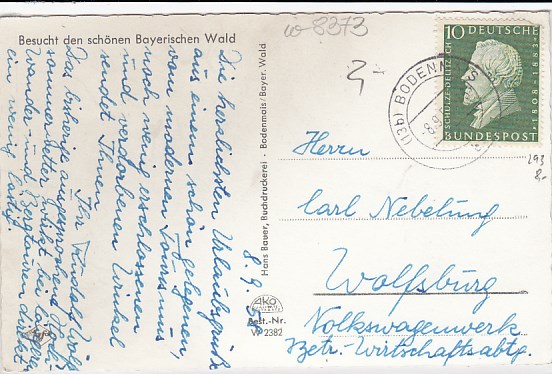 w-8373
Besucht den schönen Bayerischen Wald
8. 9. 58
Die herzlichsten Urlaubsgrüße
aus einem schön gelegenen,
vom modernen Tourismus
noch wenig erschlossenen
und verdorbenen Winkel
sendet Ihnen
Ihr
Das bisherige ausgesprochene Hoch-
sommerwetter bei
Wander- und Bergtouren direkt
ein wenig lästig.
Hans Bauer, Buchdruckerei · Bodenmais/Bayer. Wald
AKO
Best.-Nr.
W 2382
10 DEUTSCHE
BUNDESPOST
SCHULZE-DELITZSCH
1808-1883
(13b) BODENMAIS
-8.9.
293
2.-
Herrn
Carl Nebelung
Wolfsburg
Volkswagenwerk
Betr.-Wirtschaftsabtg.